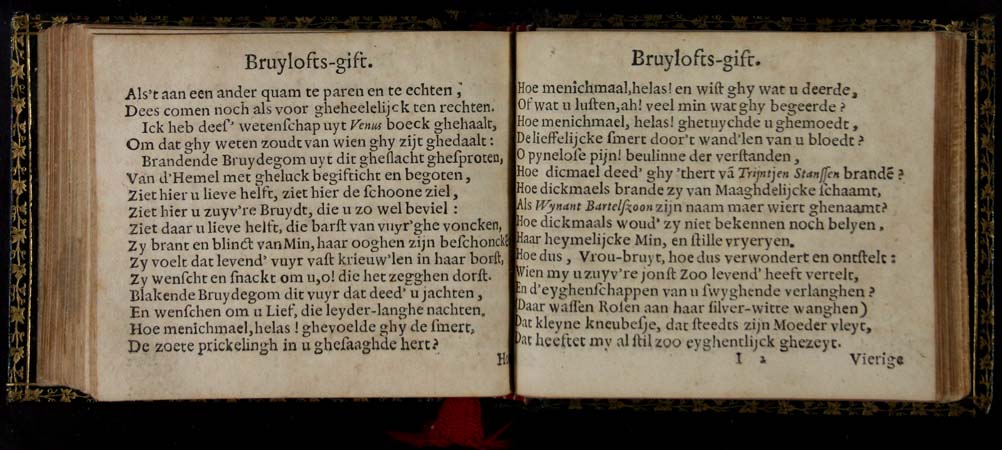 Bruylofts-gift.
Als't aan een ander quam te paren en te echten,
Dees comen noch als voor gheheelelijck ten rechten.
Ick heb deeſ' wetenſchap uyt Venus boeck ghehaalt,
Om dat ghy weten zoudt van wien ghy zijt ghedaalt:
Brandende Bruydegom uyt dit gheſlacht gheſproten,
Van d'Hemel met gheluck begifticht en begoten,
Ziet hier u lieve helft, ziet hier de ſchoone ziel,
Ziet hier u zuyv're Bruydt, die u zo wel beviel:
Ziet daar u lieve helft, die barſt van vuyr'ghe voncken,
Zy brant en blinct van Min, haar ooghen zijn beſchoncke
Zy voelt dat levend' vuyr vaſt krieuw'len in haar borſt,
Zy wenſcht en ſnackt om u, o! die het zegghen dorſt.
Blakende Bruydegom dit vuyr dat deed' u jachten,
En wenſchen om u Lief, die leyder-langhe nachten.
Hoe menichmaal, helas! ghevoelde ghy de ſmert,
De zoete prickelingh in u gheſaaghde hert?
Ho
Bruylofts-gift.
Hoe menichmaal, helas! en wiſt ghy wat u deerde,
Of wat u luſten, ah! veel min wat ghy begeerde?
Hoe menichmaal, helas! ghetuychde u ghemoedt,
De lieffelijcke ſmert door't wand'len van u bloedt?
O pyneloſe pijn! beulinne der verſtanden,
Hoe dicmael deed' ghy 'thert vā Trijntjen Stanſſen brandē?
Hoe dickmaels brande zy van Maaghdelijcke ſchaamt,
Als Wynant Bartelſzoon zijn naam maer wiert ghenaamt?
Hoe dickmaals woud' zy niet bekennen noch belyen,
Haar heymelijcke Min, en ſtille vryeryen.
Hoe dus, Vrou-bruyt, hoe dus verwondert en ontſtelt:
Wien my u zuyv're jonſt zoo levend' heeft vertelt,
En d'eyghenſchappen van u ſwyghende verlanghen?
(Daar waſſen Roſen aan haar ſilver-witte wanghen)
Dat kleyne kneubeſje, dat ſteedts zijn Moeder vleyt,
Dat heeftet my al ſtil zoo eyghentlijck ghezeyt.
I 2 Vierige